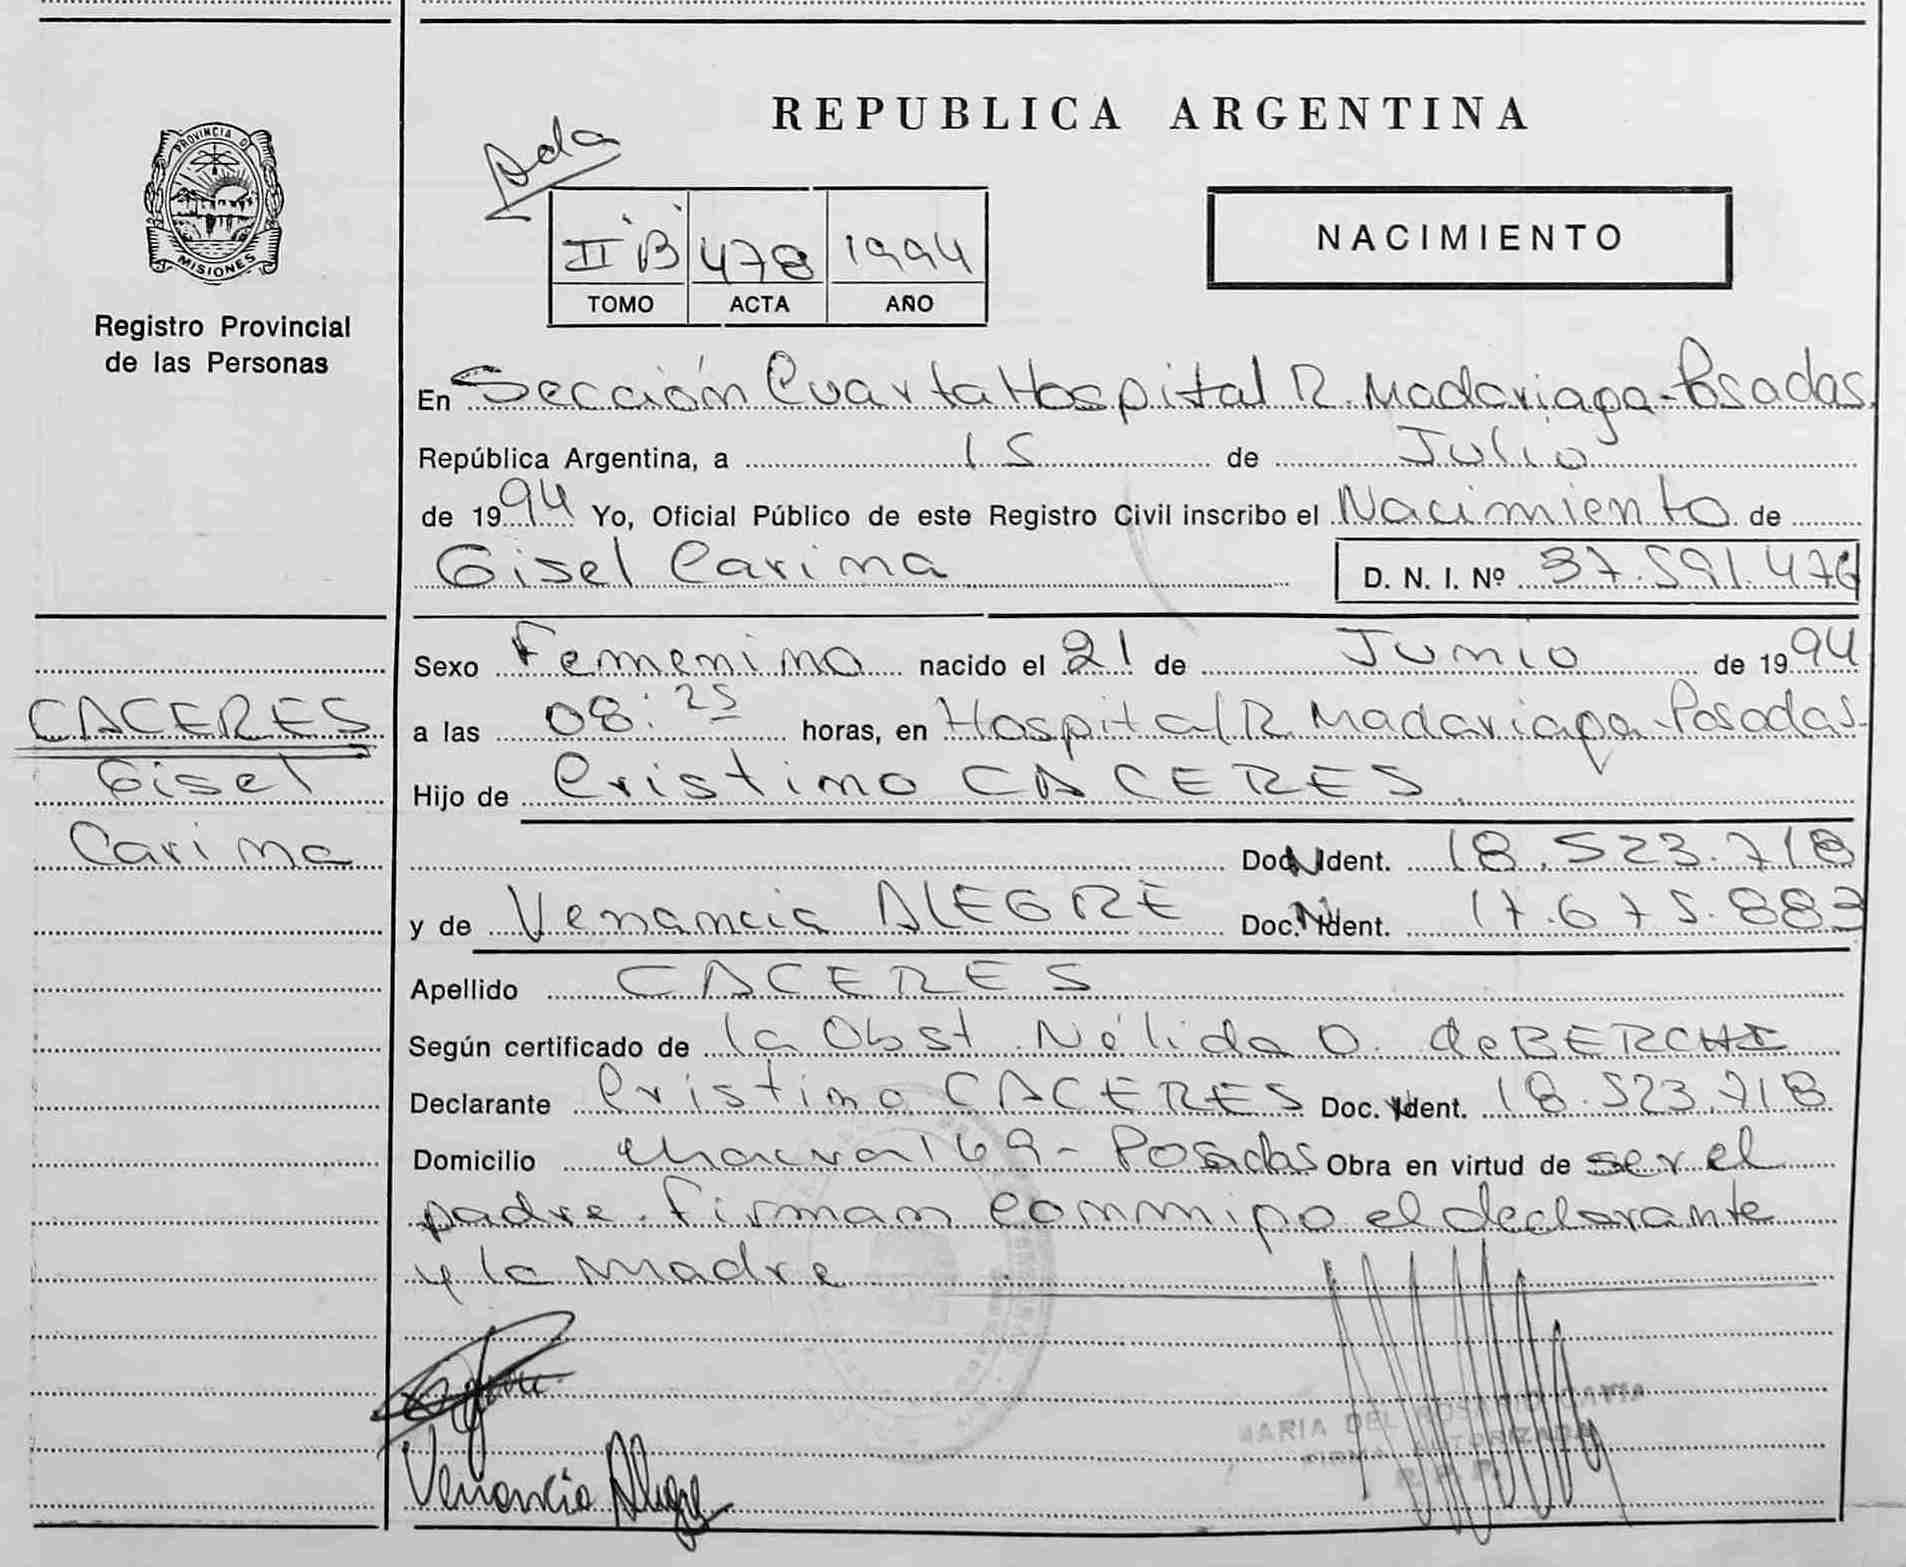 PROVINCIA D
MISIONES
Registro Provincial
de las Personas
REPUBLICA ARGENTINA
II "B" 478 1994
TOMO ACTA AÑO
NACIMIENTO
En Sección Cuarta Hospital R. Madariaga-Posadas.
República Argentina, a 15 de Julio
de 1994 Yo, Oficial Público de este Registro Civil inscribo el Nacimiento de
Gisel Carina
D. N. I. Nº 37.591.476
Sexo Femenino nacido el 21 de Junio de 1994
CACERES
Gisel
Carina
a las 08:25 horas, en Hospital R. Madariaga-Posadas-
Hijo de Cristino CACERES
Doc. Ident. 18.523.718
y de Venancia ALEGRE Doc. Ident. 17.675.883
Apellido CACERES
Según certificado de la Obst. Nélida O. de BERCHI
Declarante Cristino CACERES Doc. Ident. 18.523.718
Domicilio chacra 169- Posadas Obra en virtud de ser el
padre. Firman conmigo el declarante
y la madre
Venancia Alegre
MARIA DEL ROSARIO
FIRMA AUTORIZADA
R. P. P.